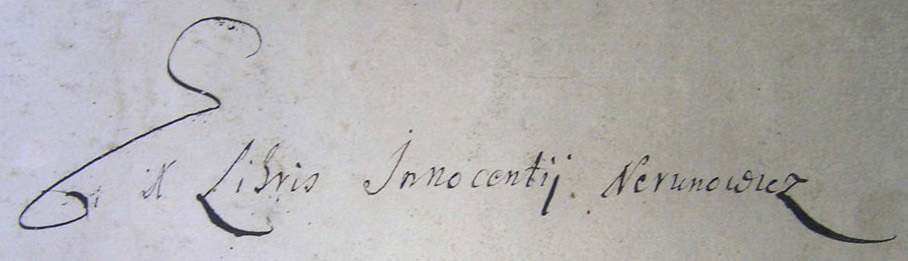 Ex Libris Innocentij Nerunowicz